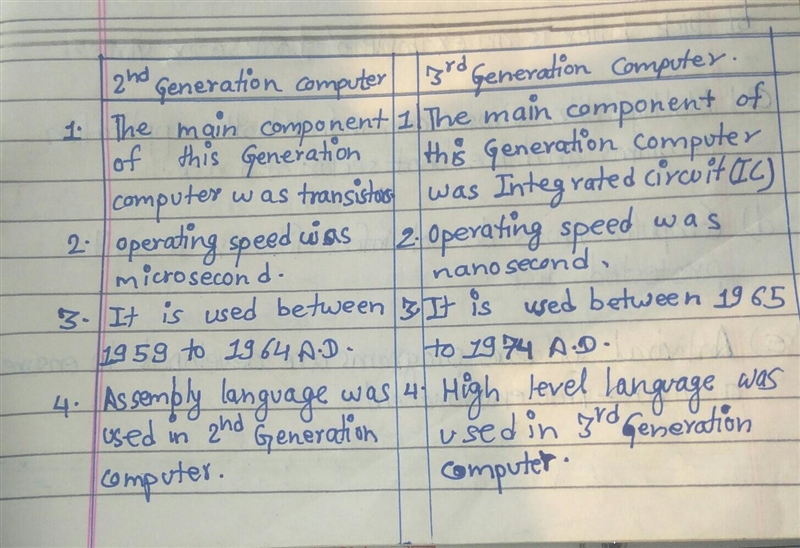 2nd Generation computer
1. The main component
of this Generation
computer was transistors
2. operating speed was
microsecond.
3. It is used between
1959 to 1964 A.D.
4. Assembly language was
used in 2nd Generation
computer.
3rd Generation Computer.
1 The main component of
this Generation computer
was Integrated circuit (IC)
2. Operating speed was
nanosecond.
3. It is used between 1965
to 1974 A.D.
4. High level language was
used in 3rd Generation
Computer.